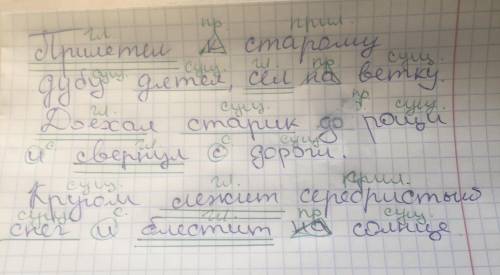 гл. пр. прил.
Прилетел к старому
сущ. сущ. гл. пр. сущ.
дубу дятел, сел на ветку.
гл. сущ. пр. сущ.
Доехал старик до рощи
с гл. с. сущ.
и свернул с дороги.
сущ. гл. прил.
Кругом лежит серебристый
сущ. с. гл. пр. сущ.
снег и блестит на солнце